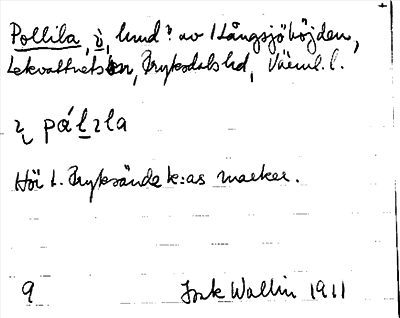 Pollila, i, lund? av Långsjöhöjden,
Lekvattnets sn, Fryksdals hd, Värml. l.
pálzla
Hör t. Fryksände k:as marker.
9 Wallin 1911